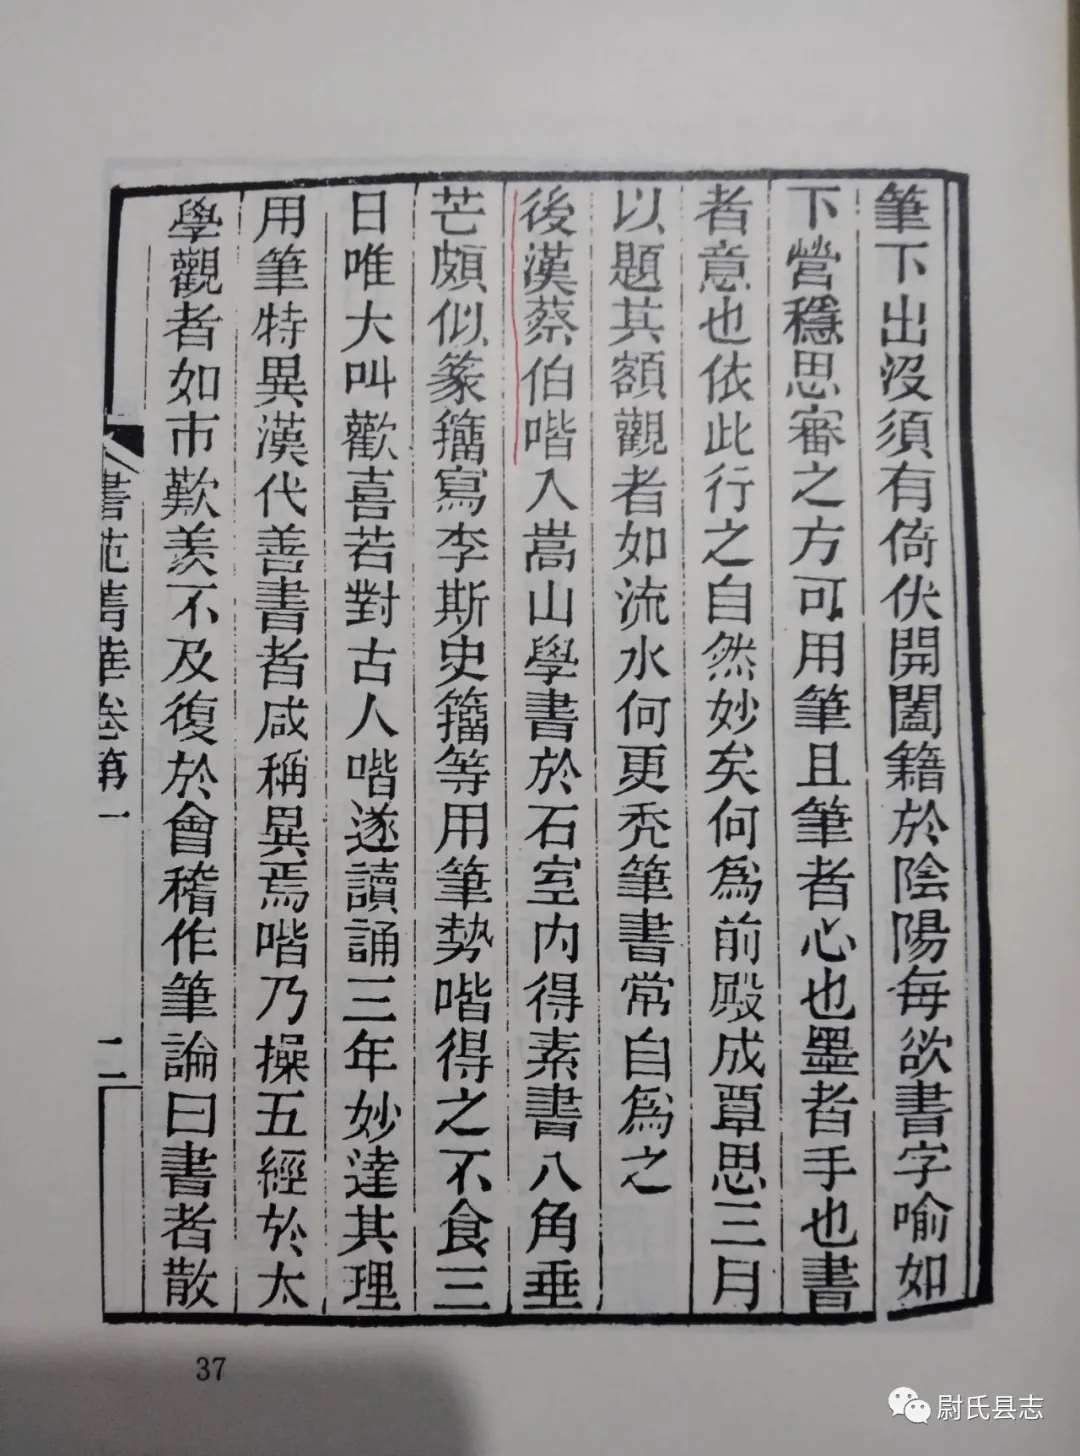 筆下出沒須有倚伏開闔籍於陰陽每欲書字喻如
下營穩思審之方可用筆且筆者心也墨者手也書
者意也依此行之自然妙矣何爲前殿成覃思三月
以題其額觀者如流水何更禿筆書常自爲之
後漢蔡伯喈入嵩山學書於石室內得素書八角垂
芒頗似篆籀寫李斯史籀等用筆勢喈得之不食三
日唯大叫歡喜若對古人喈遂讀誦三年妙達其理
用筆特異漢代善書者咸稱異焉喈乃操五經於太
學觀者如市歎羨不及復於會稽作筆論曰書者散
書苑菁華卷第一
二
37
尉氏县志